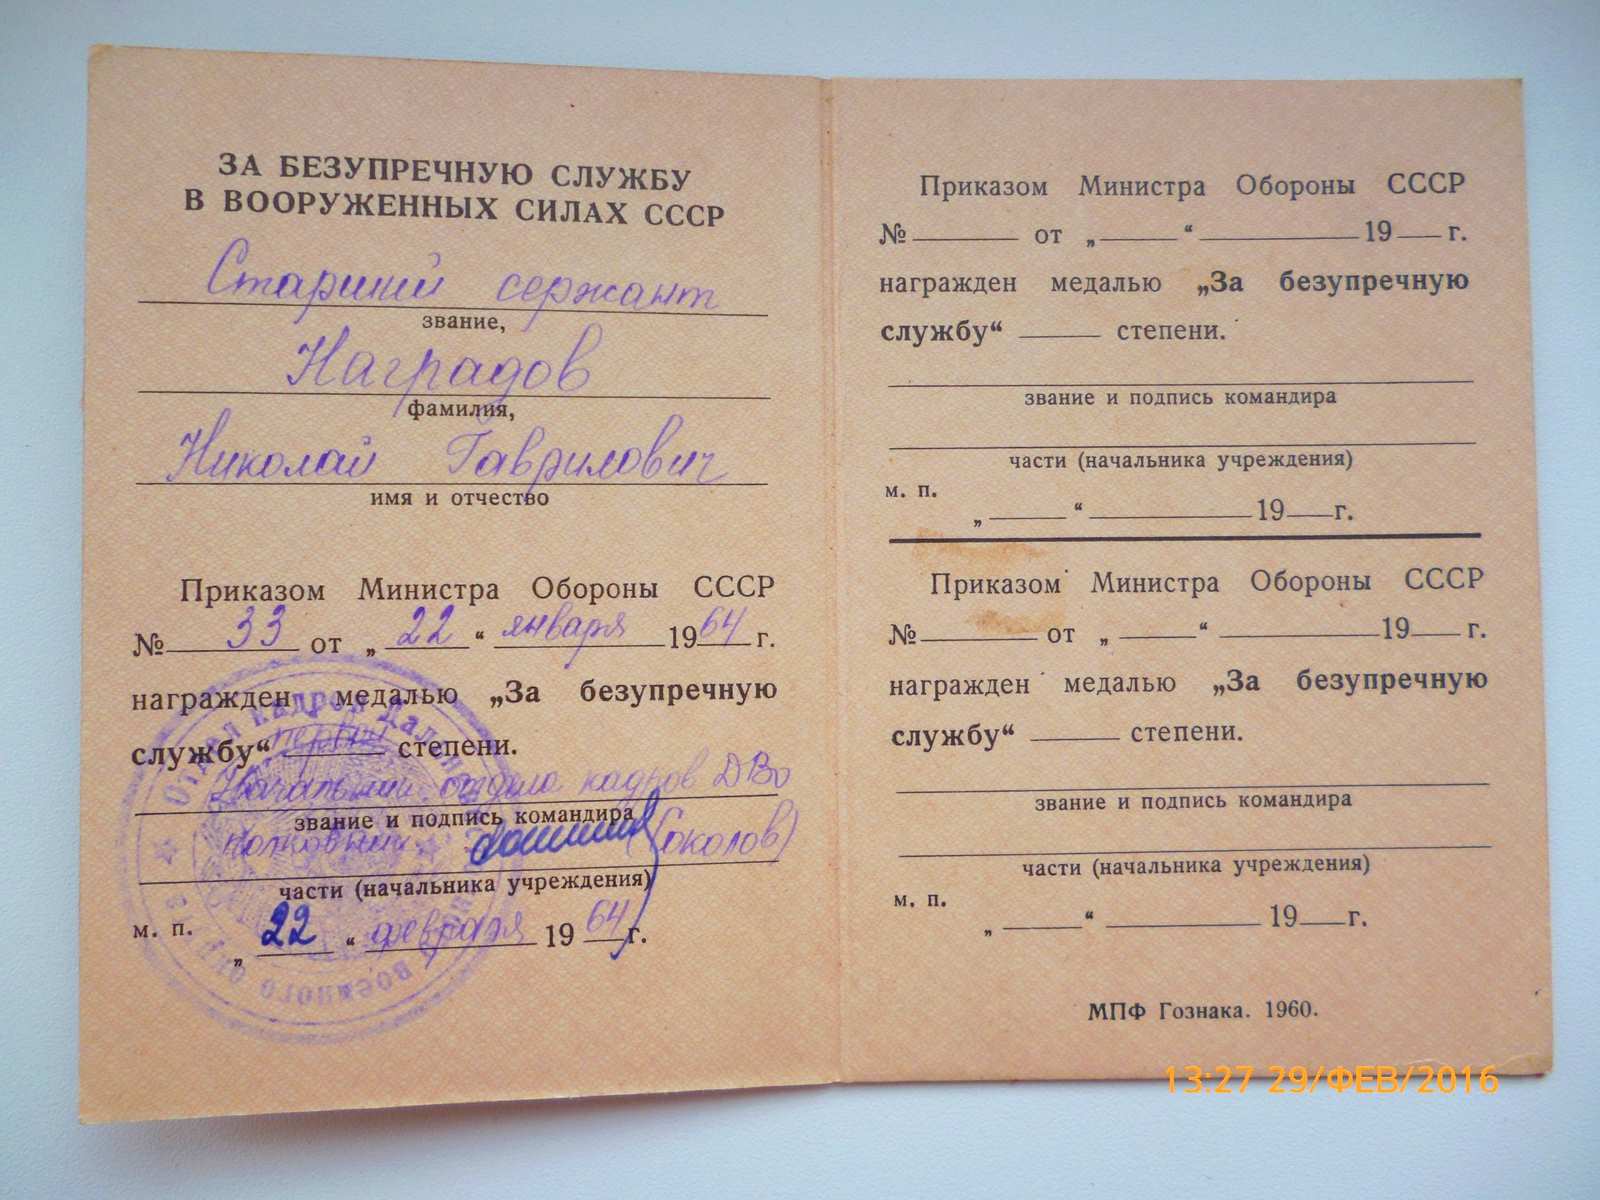 ЗА БЕЗУПРЕЧНУЮ СЛУЖБУ
В ВООРУЖЕННЫХ СИЛАХ СССР
Старший сержант
звание,
Наградов
фамилия,
Николай Гаврилович
имя и отчество
Приказом Министра Обороны СССР
№ 33 от „ 22 “ января 1964 г.
награжден медалью „За безупречную
службу“ первой степени.
Начальник отдела кадров ДВО
звание и подпись командира
полковник (Соколов)
части (начальника учреждения)
м. п. „ 22 “ февраля 1964 г.
Отдел кадров военного
Приказом Министра Обороны СССР
№ от „ “ 19 г.
награжден медалью „За безупречную
службу“ степени.
звание и подпись командира
части (начальника учреждения)
м. п.
„ “ 19 г.
Приказом Министра Обороны СССР
№ от „ “ 19 г.
награжден медалью „За безупречную
службу“ степени.
звание и подпись командира
части (начальника учреждения)
м. п.
„ “ 19 г.
МПФ Гознака. 1960.
13:27 29/ФЕВ/2016